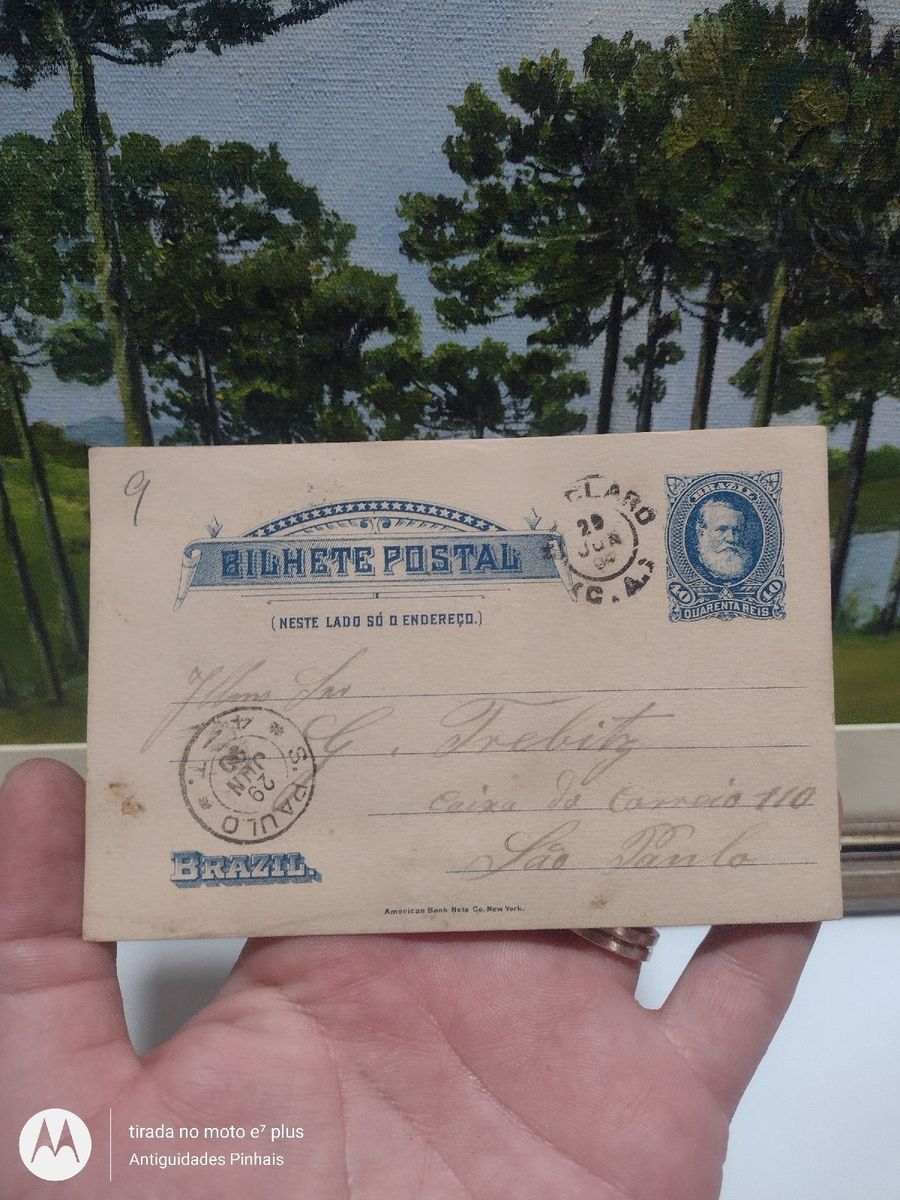 9
BILHETE POSTAL
(NESTE LADO SÓ O ENDEREÇO.)
CLARO
29
JUN
BRAZIL
40 40
QUARENTA REIS
Illmo Snr
G. Trebitz
Caixa do Correio 110
São Paulo
S. PAULO
29
JUN
90
BRAZIL.
American Bank Note Co. New York.
tirada no moto e⁷ plus
Antiguidades Pinhais